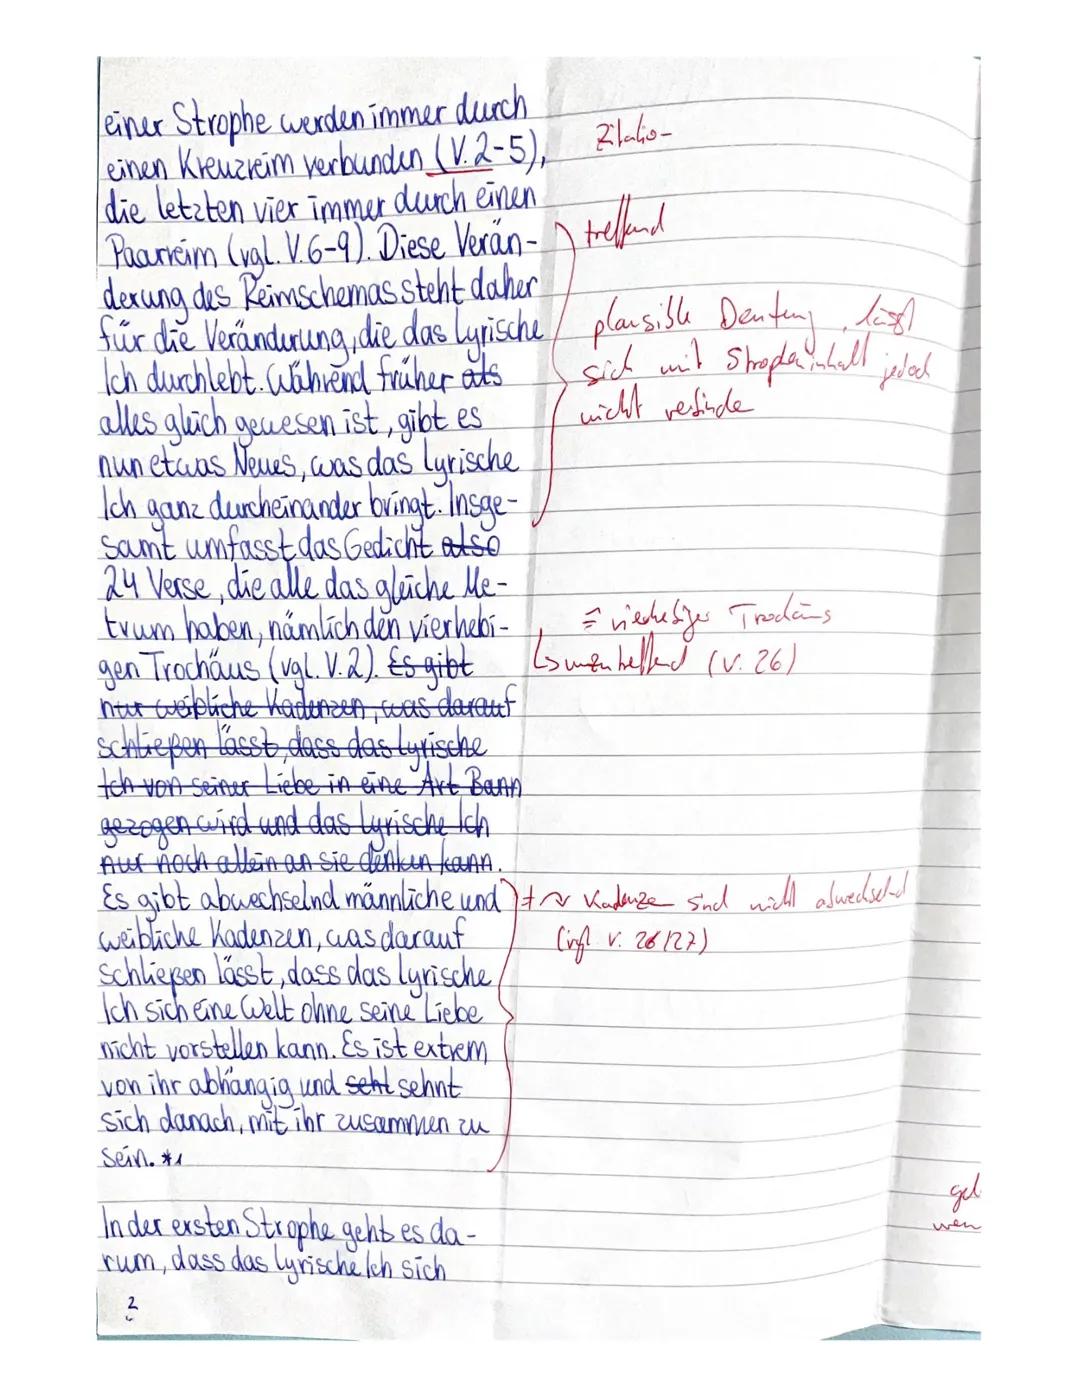 einer Strophe werden immer durch
einen Kreuzreim verbunden (V. 2-5),
Zitatio-
die letzten vier immer durch einen
Paarreim (vgl. V. 6-9). Diese Verän-
treffend
derung des Reimschemas steht daher
für die Veränderung, die das lyrische
plausible Deutung, lässt
Ich durchlebt. Während früher als
sich mit Stropheninhalt jedoch
alles gleich gewesen ist, gibt es
nicht verbinde
nun etwas Neues, was das lyrische
Ich ganz durcheinander bringt. Insge-
samt umfasst das Gedicht also
24 Verse, die alle das gleiche Me-
trum haben, nämlich den vierhebi-
= vierhebiger Trochäus
gen Trochäus (vgl. V. 2). Es gibt
↳ unzutreffend (V. 26)
nur weibliche Kadenzen, was darauf
schließen lässt, dass das lyrische
Ich von seiner Liebe in eine Art Bann
gezogen wird und das lyrische Ich
nur noch allein an sie denken kann.
Es gibt abwechselnd männliche und
Kadenze sind nicht abwechselnd
weibliche Kadenzen, was darauf
(vgl. V. 26/27)
schließen lässt, dass das lyrische
Ich sich eine Welt ohne seine Liebe
nicht vorstellen kann. Es ist extrem
von ihr abhängig und seht sehnt
sich danach, mit ihr zusammen zu
sein. *1
In der ersten Strophe geht es da-
rum, dass das lyrische Ich sich
2